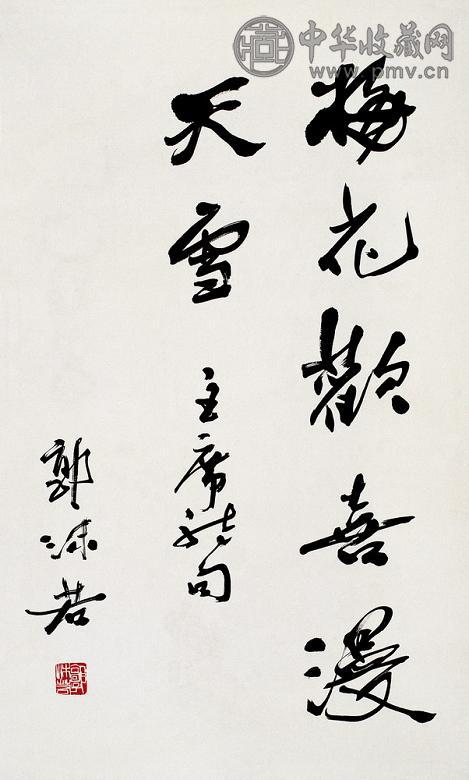 中华收藏网
www.pmv.cn
梅花歡喜漫
天雪 主席诗句
郭沫若
郭沫若